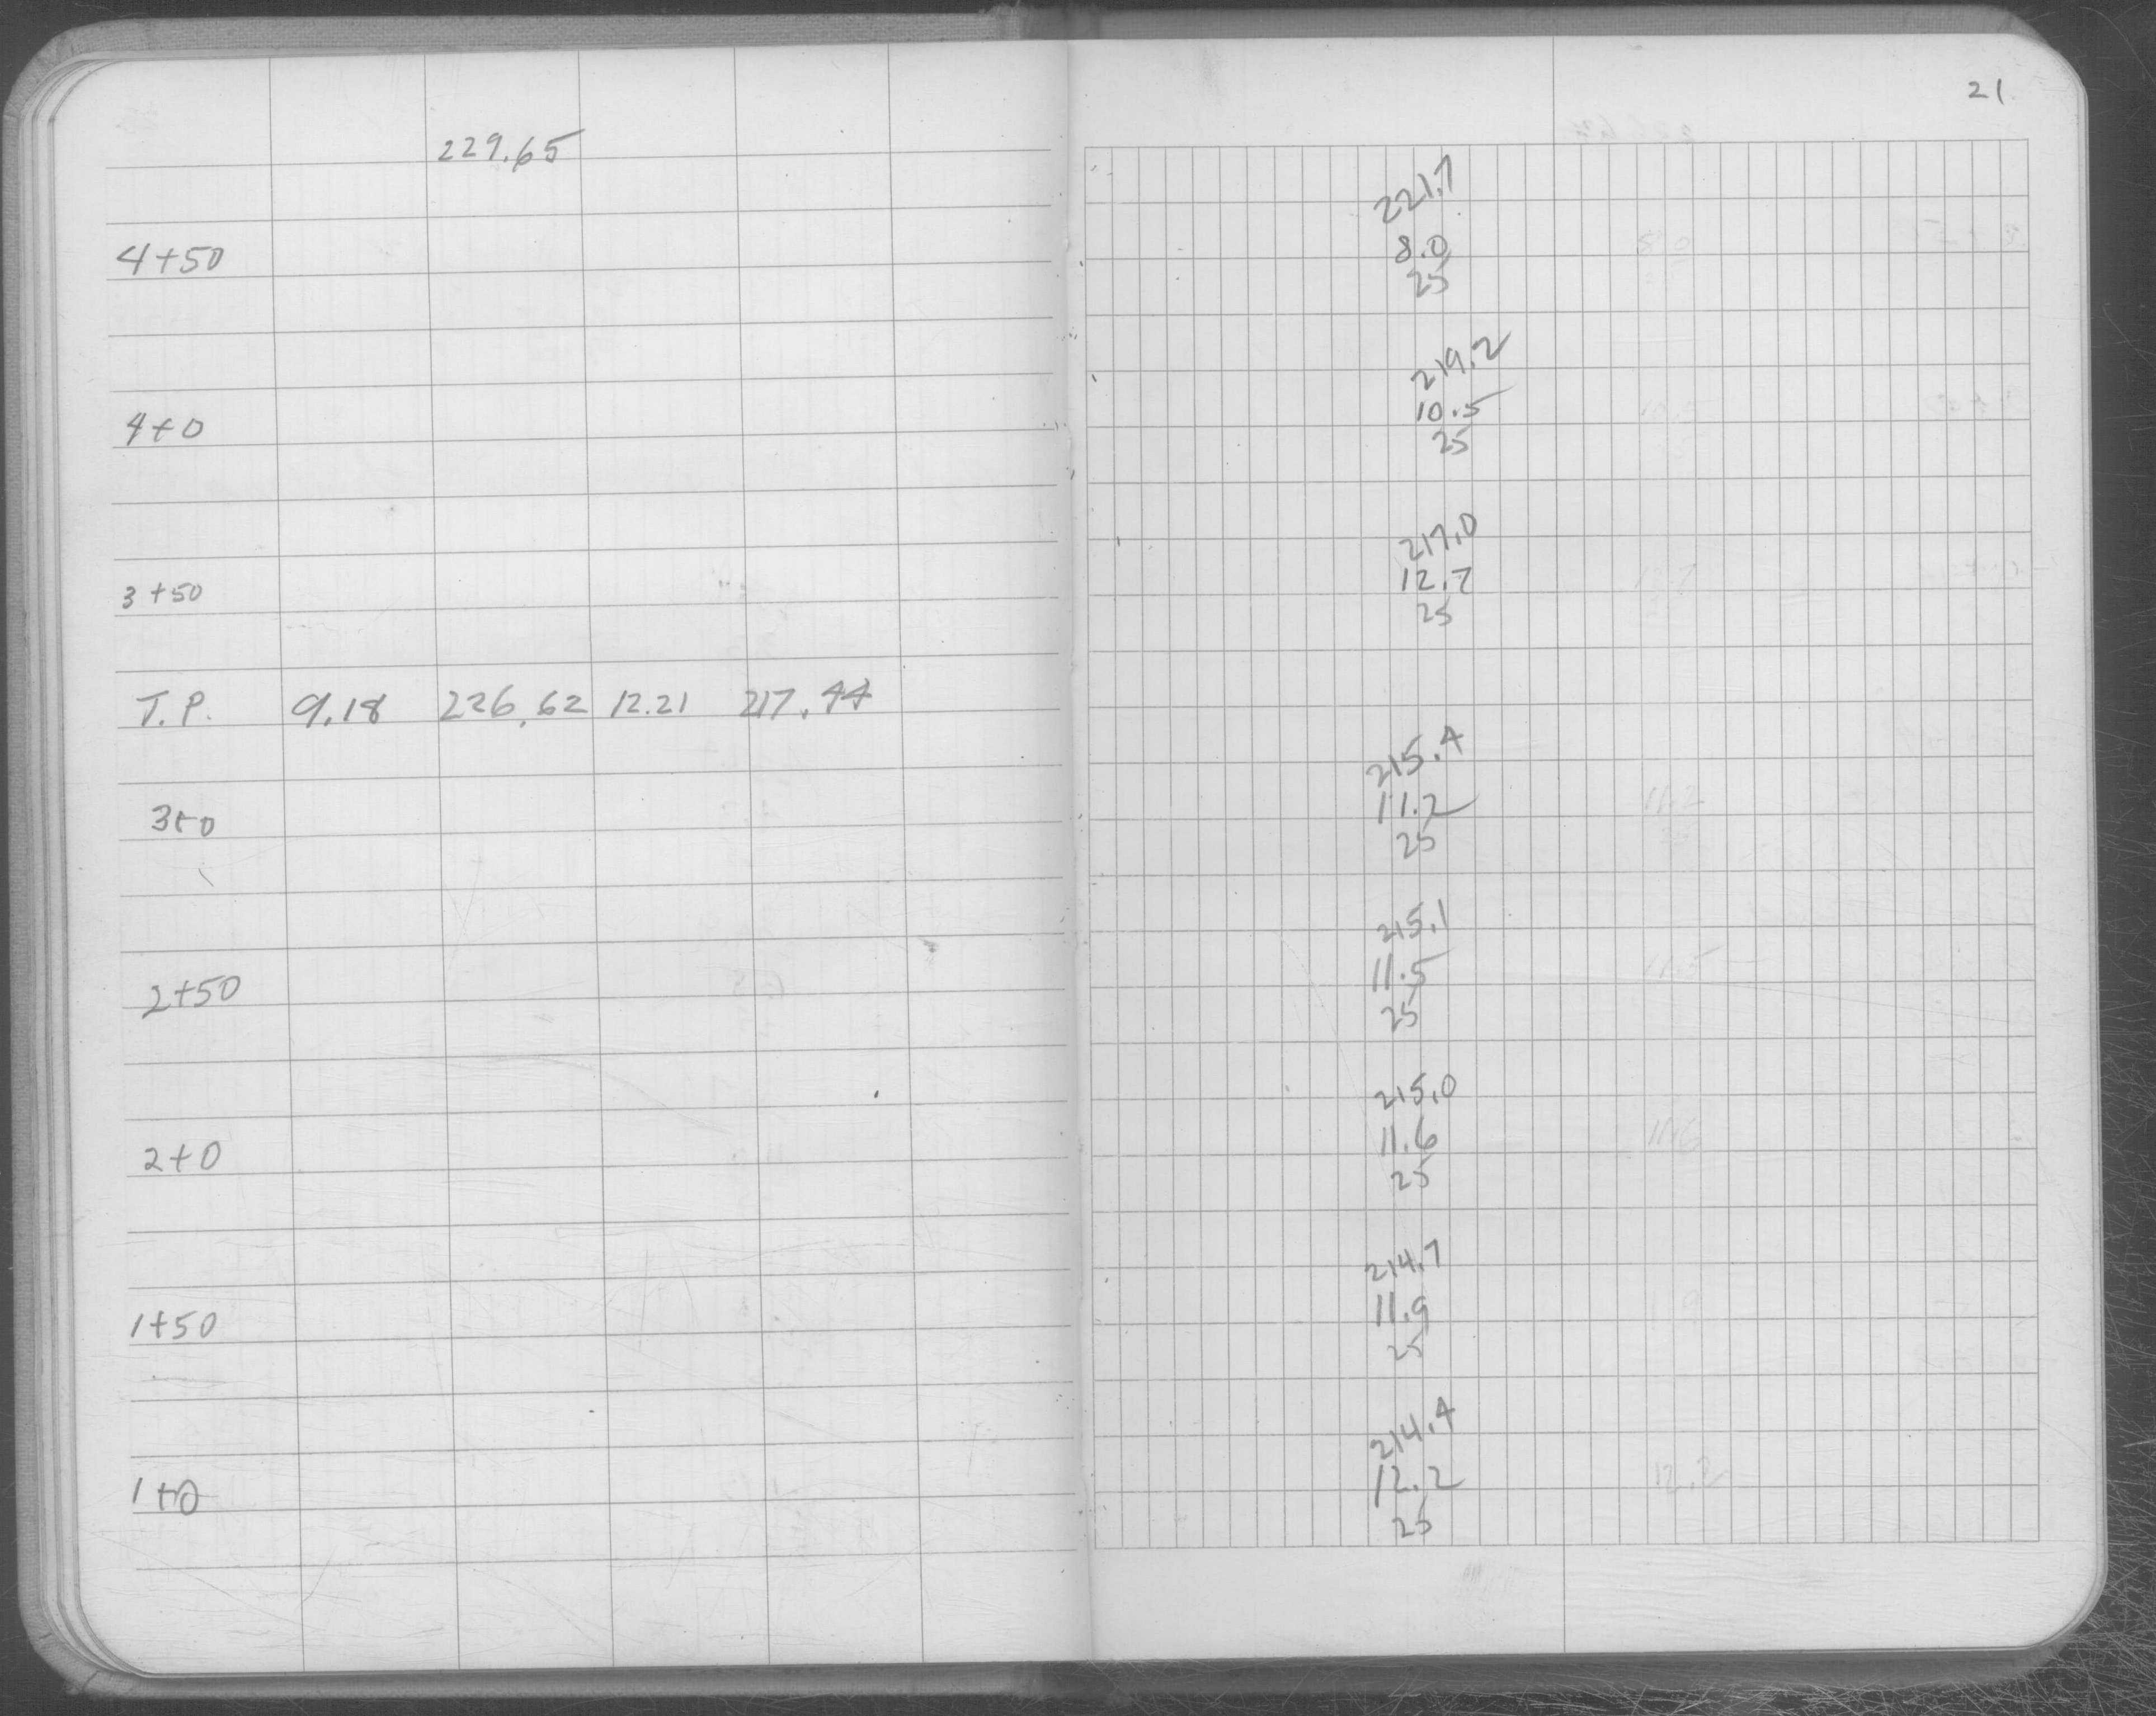 21
229.65
221.7
4+50 8.0
25
219.2
4+0 10.5
25
217.0
3+50 12.7
25
T.P. 9.18 226.62 12.21 217.44
215.4
3+0 11.2
25
215.1
2+50 11.5
25
215.0
2+0 11.6
25
214.7
1+50 11.9
25
214.4
1+0 12.2
25